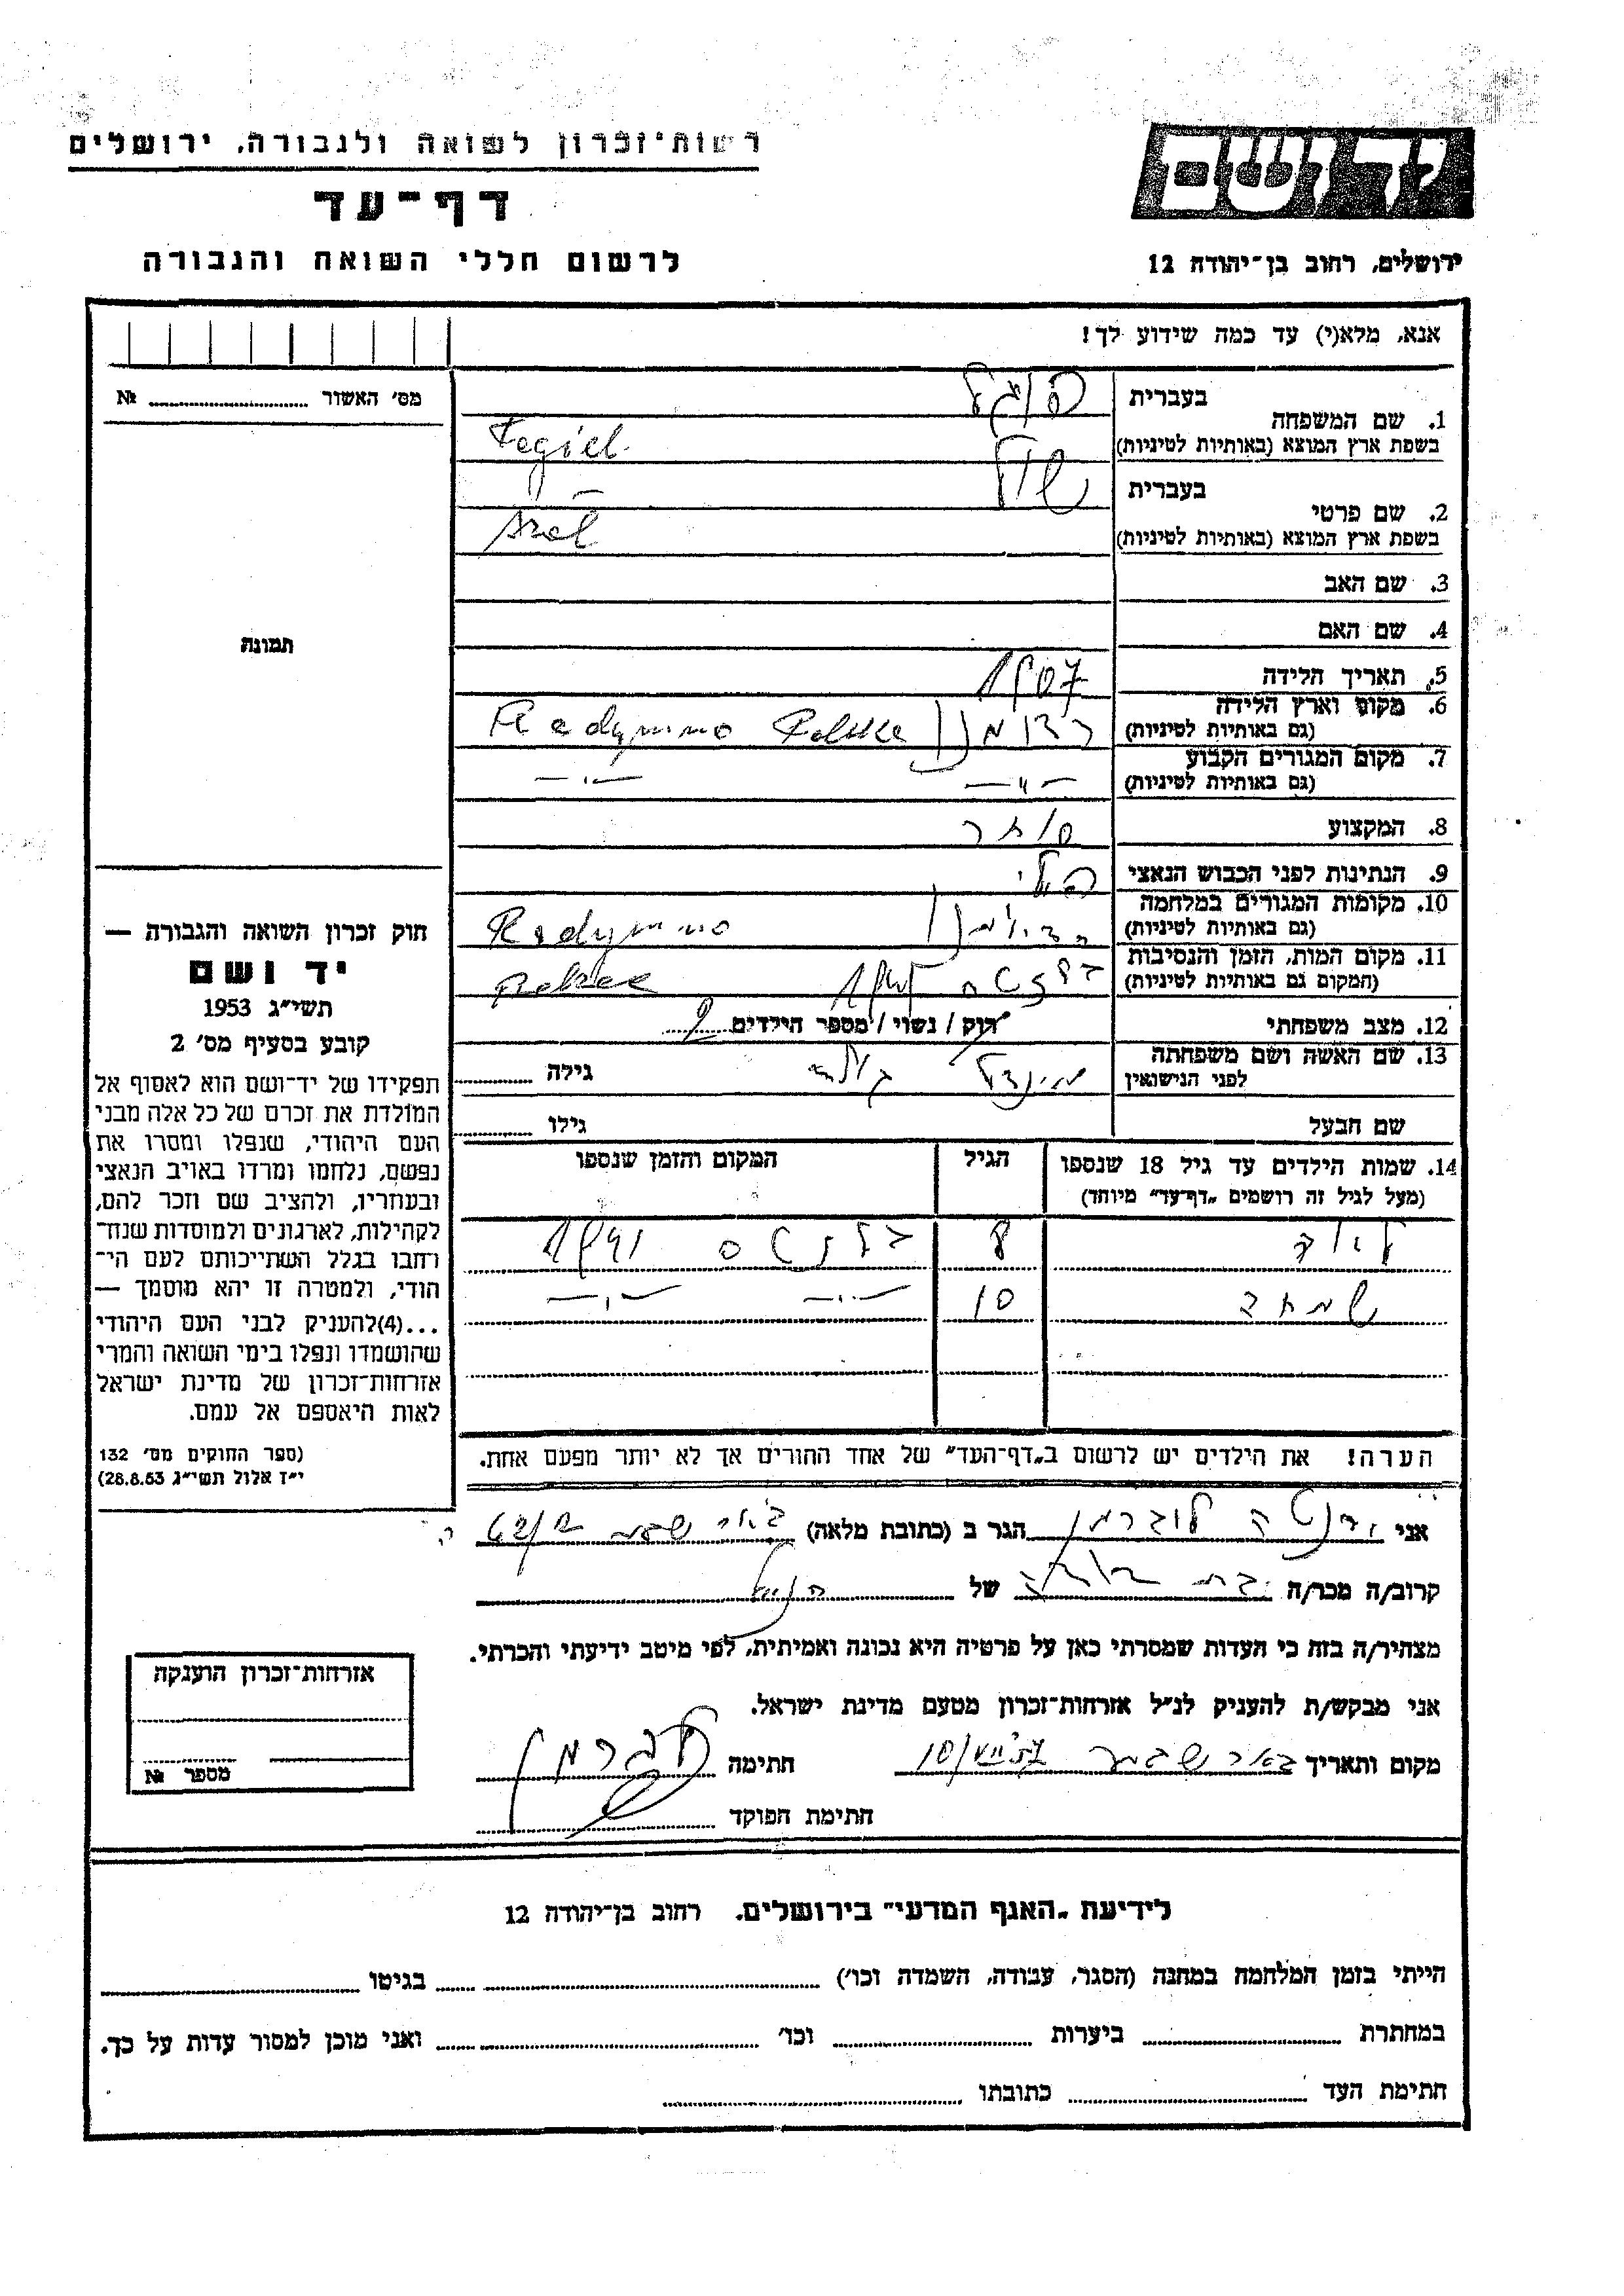 רשות־זכרון לשואה ולגבורה, ירושלים
דף־עד
לרשום חללי השואה והגבורה
יד ושם
ירושלים, רחוב בן־יהודה 12
אנא, מלא(י) עד כמה שידוע לך!
מס׳ האשור № 
1. שם המשפחה
בעברית
בשפת ארץ המוצא (באותיות לטיניות)
2. שם פרטי
בעברית
בשפת ארץ המוצא (באותיות לטיניות)
3. שם האב
4. שם האם
5. תאריך הלידה 1907
6. מקום וארץ הלידה
(גם באותיות לטיניות) Radymno Polska
7. מקום המגורים הקבוע
(גם באותיות לטיניות) —״— —״—
8. המקצוע סוחר
9. הנתינות לפני הכבוש הנאצי פולני
10. מקומות המגורים במלחמה
(גם באותיות לטיניות) Radymno
11. מקום המות, הזמן והנסיבות
(המקום גם באותיות לטיניות)
12. מצב משפחתי רוק / נשוי / מספר הילדים 2
13. שם האשה ושם משפחתה
לפני הנישואין גילה
שם הבעל גילו
14. שמות הילדים עד גיל 18 שנספו
(מעל לגיל זה רושמים „דף־עד״ מיוחד)
הגיל
המקום והזמן שנספו
8
10 —״— —״—
הערה! את הילדים יש לרשום ב„דף־העד״ של אחד ההורים אך לא יותר מפעם אחת.
תמונה
חוק זכרון השואה והגבורה —
יד ושם
תשי״ג 1953
קובע בסעיף מס׳ 2
תפקידו של יד־ושם הוא לאסוף אל
המולדת את זכרם של כל אלה מבני
העם היהודי, שנפלו ומסרו את
נפשם, נלחמו ומרדו באויב הנאצי
ובעוזריו, ולהציב שם וזכר להם,
לקהילות, לארגונים ולמוסדות שנח־
רבו בגלל השתייכותם לעם הי־
הודי, ולמטרה זו יהא מוסמך —
...(4) להעניק לבני העם היהודי
שהושמדו ונפלו בימי השואה והמרי
אזרחות־זכרון של מדינת ישראל
לאות היאספם אל עמם.
(ספר החוקים מס׳ 132
י״ז אלול תשי״ג 28.8.53)
אני לוברמן הגר ב (כתובת מלאה) באר שבע
קרוב/ה מכר/ה של
מצהיר/ה בזה כי העדות שמסרתי כאן על פרטיה היא נכונה ואמיתית, לפי מיטב ידיעתי והכרתי.
אני מבקש/ת להעניק לנ״ל אזרחות־זכרון מטעם מדינת ישראל.
מקום ותאריך באר שבע חתימה
חתימת הפוקד
אזרחות־זכרון הוענקה
מספר №
לידיעת „האגף המדעי״ בירושלים. רחוב בן־יהודה 12
הייתי בזמן המלחמה במחנה (הסגר, עבודה, השמדה וכו׳) בגיטו
במחתרת ביערות וכו׳ ואני מוכן למסור עדות על כך.
חתימת העד כתובתו